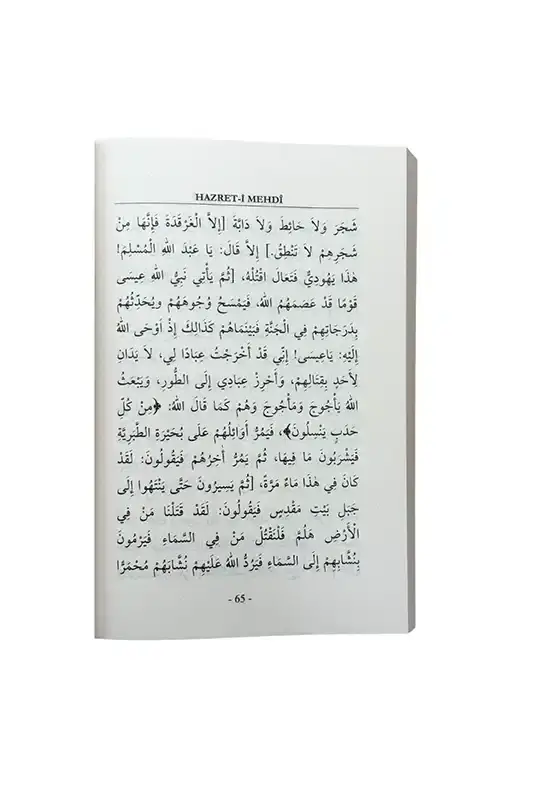 HAZRET-İ MEHDÎ
شَجَرَ وَلاَ حَائِطَ وَلاَ دَابَّةَ [إِلاَّ الْغَرْقَدَةَ فَإِنَّهَا مِنْ
شَجَرِهِمْ لاَ تَنْطِقُ.] إِلاَّ قَالَ: يَا عَبْدَ اللهِ الْمُسْلِمَ!
هٰذَا يَهُودِيٌّ فَتَعَالَ اقْتُلْهُ، [ثُمَّ يَأْتِي نَبِيُّ اللهِ عِيسَى
قَوْمًا قَدْ عَصَمَهُمُ اللهُ، فَيَمْسَحُ وُجُوهَهُمْ وَيُحَدِّثُهُمْ
بِدَرَجَاتِهِمْ فِي الْجَنَّةِ فَبَيْنَمَاهُمْ كَذَالِكَ إِذْ اَوْحَى اللهُ
إِلَيْهِ: يَاعِيسَى! إِنِّي قَدْ أَخْرَجْتُ عِبَادًا لِي، لاَ يَدَانِ
لِأَحَدٍ بِقِتَالِهِمْ، وَأَحْرِزْ عِبَادِي إِلَى الطُّورِ، وَيَبْعَثُ
اللهُ يَأْجُوجَ وَمَأْجُوجَ وَهُمْ كَمَا قَالَ اللهُ: ﴿مِنْ كُلِّ
حَدَبٍ يَنْسِلُونَ﴾، فَيَمُرُّ أَوَائِلُهُمْ عَلَى بُحَيْرَةِ الطَّبَرِيَّةِ
فَيَشْرَبُونَ مَا فِيهَا، ثُمَّ يَمُرُّ آخِرُهُمْ فَيَقُولُونَ: لَقَدْ
كَانَ فِي هٰذَا مَاءٌ مَرَّةً، [ثُمَّ يَسِيرُونَ حَتَّى يَنْتَهُوا إِلَى
جَبَلِ بَيْتِ مَقْدِسٍ فَيَقُولُونَ: لَقَدْ قَتَلْنَا مَنْ فِي
الْأَرْضِ هَلُمَّ فَلْنَقْتُلْ مَنْ فِي السَّمَاءِ فَيَرْمُونَ
بِنُشَّابِهِمْ إِلَى السَّمَاءِ فَيَرُدُّ اللهُ عَلَيْهِمْ نُشَّابَهُمْ مُحْمَرًّا
- 65 -